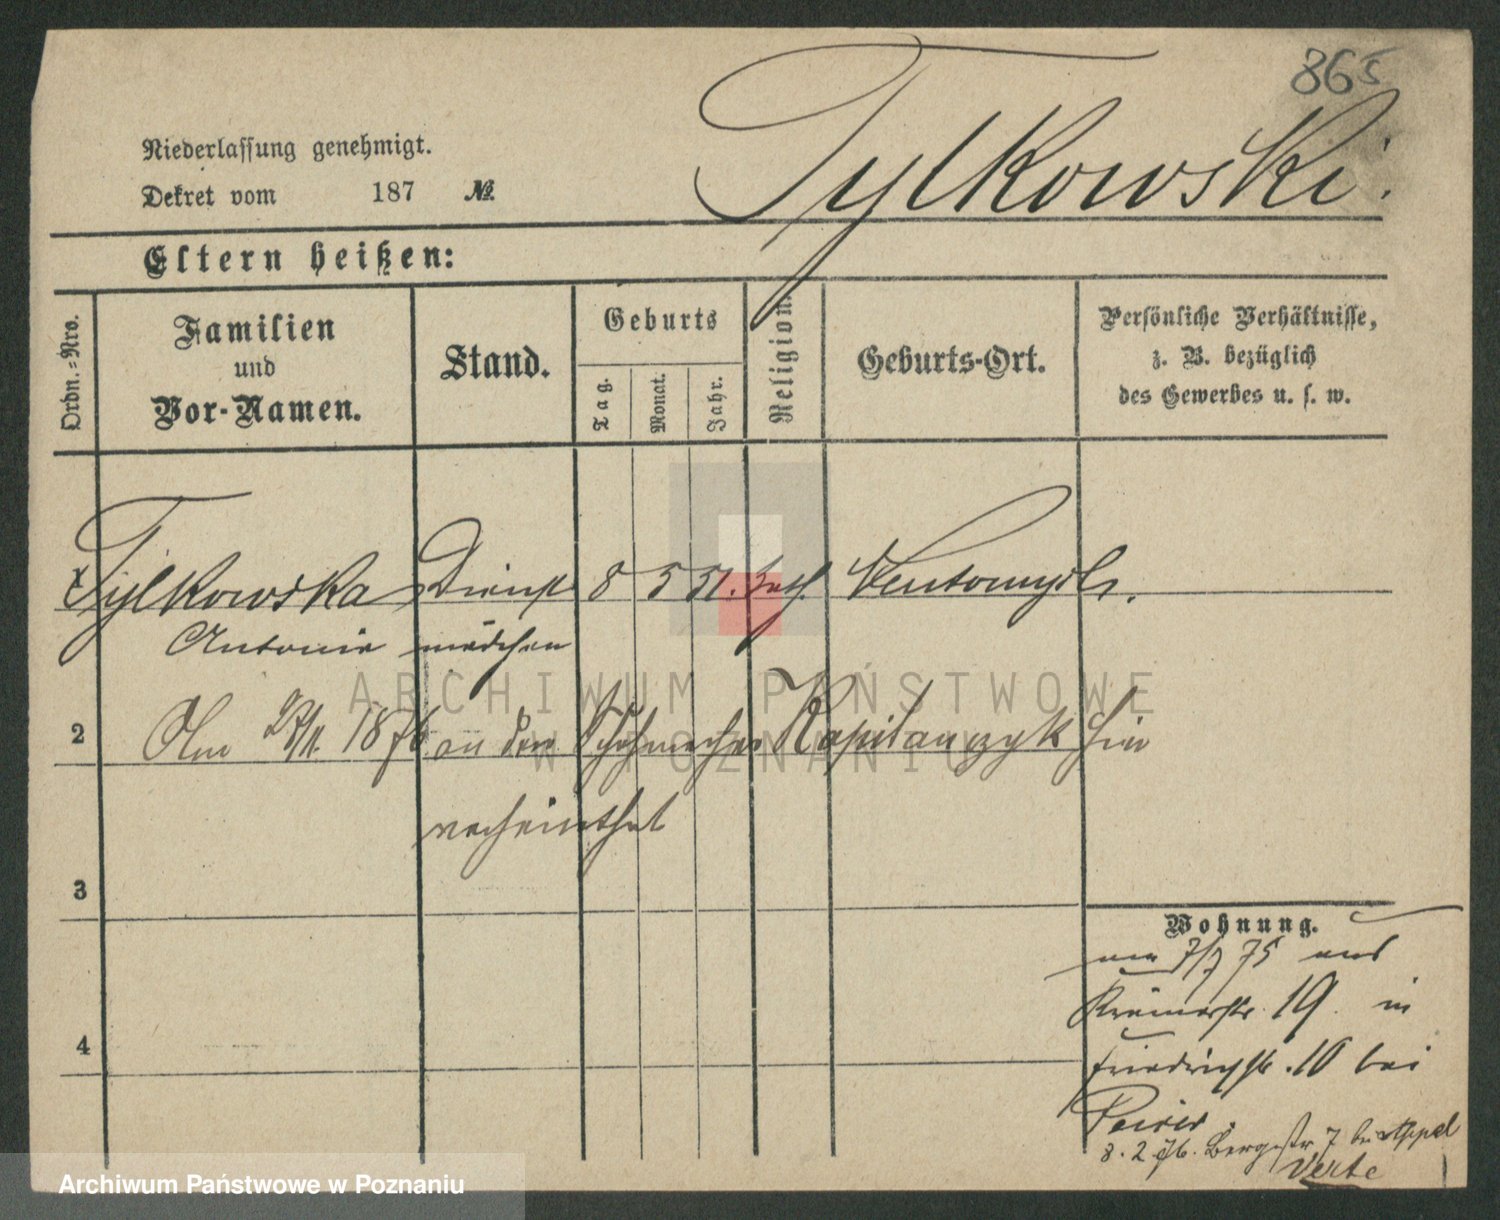 865
Tylkowski.
Niederlassung genehmigt.
Dekret vom 187 №
Eltern heißen:
Ordn.-Nro.
Familien
und
Vor-Namen.
Stand.
Geburts
Tag.
Monat.
Jahr.
Religion.
Geburts-Ort.
Persönliche Verhältnisse,
z. B. bezüglich
des Gewerbes u. s. w.
1 Tylkowska Dienst 8 5 51. kath. Neutomysl.
Antonie mädchen
ARCHIWUM PAŃSTWOWE
W POZNANIU
2 Am 1876 an den Schuhmacher Kapitanczyk hier
verheirathet
3
4
Wohnung.
am 7/7 75 aus
Krämerstr. 19. in
Friedrichstr. 10 bei
8. 2. 76. Bergstr 7 bei Appel
Verte
Archiwum Państwowe w Poznaniu